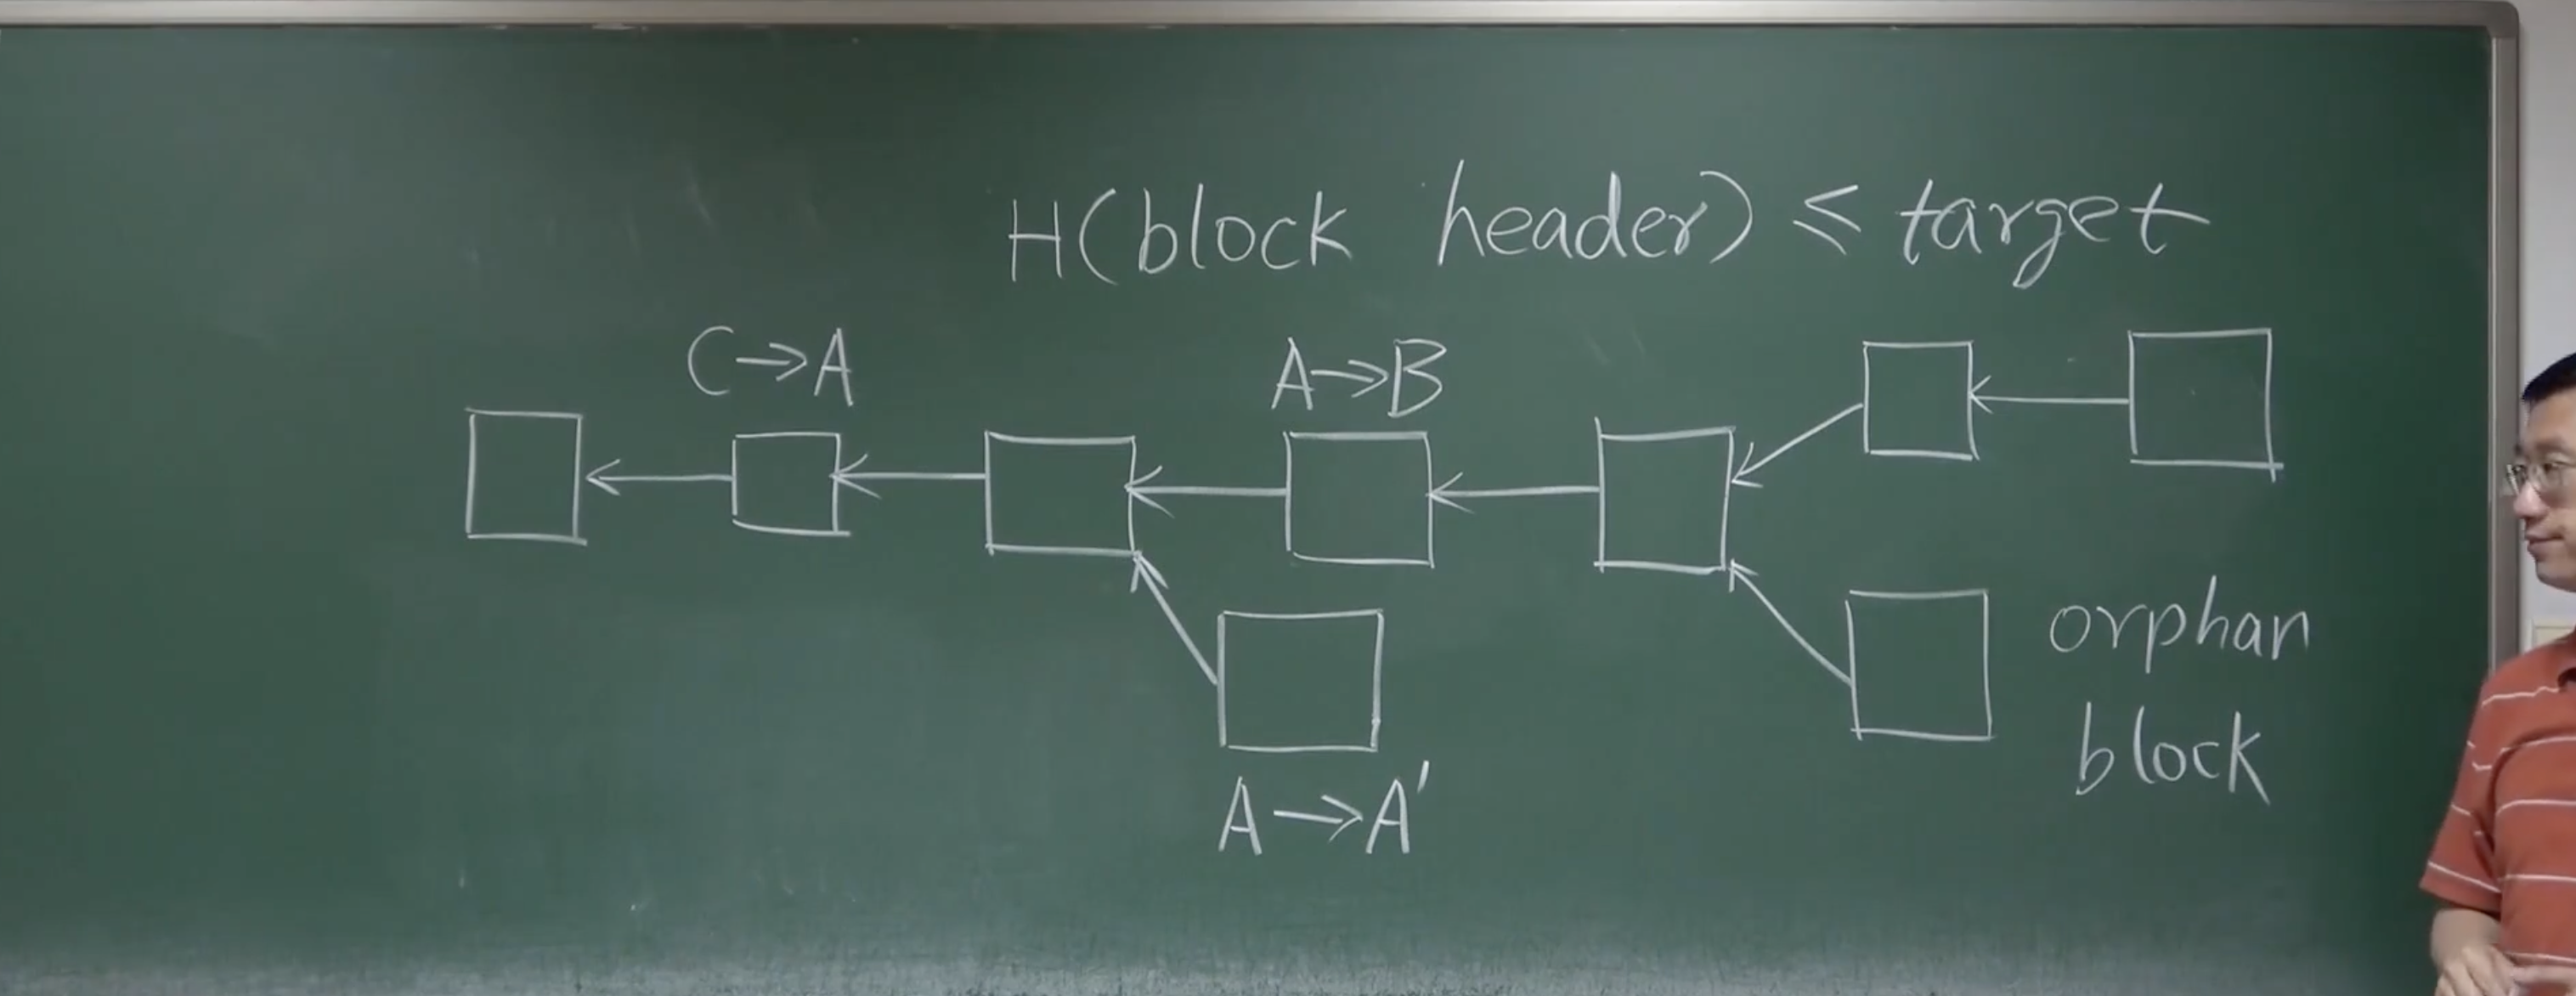 H(block header) ≤ target
C→A
A→B
orphan
block
A→A'